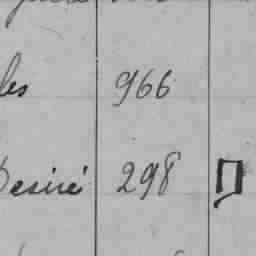 les 966
Desiré 298